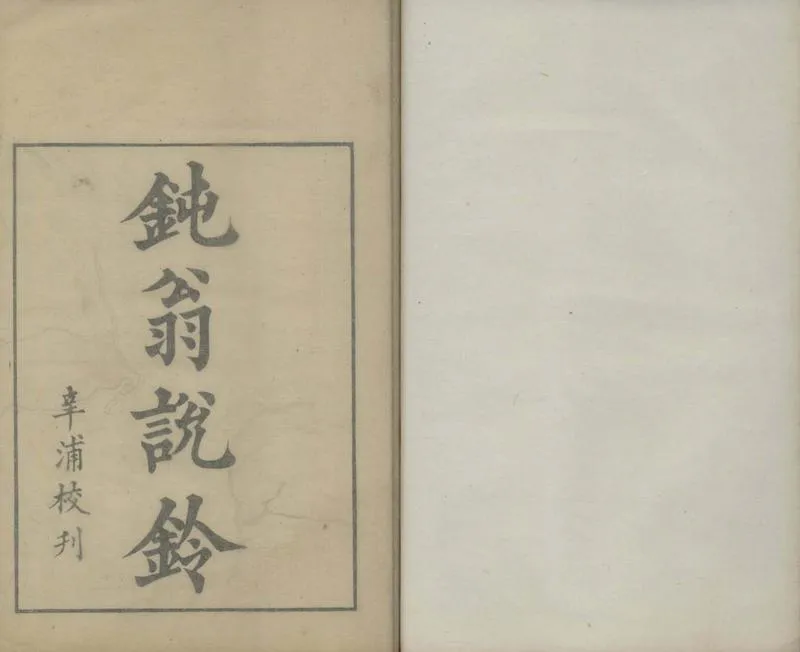 鈍翁說鈴
辛浦校刊